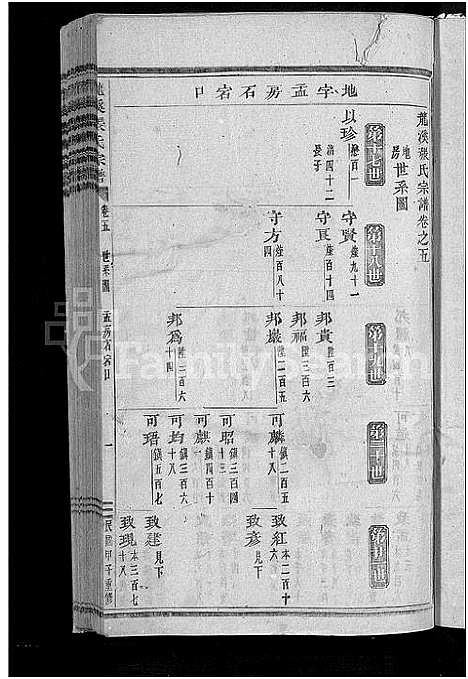 龍溪張氏宗譜卷之五
地房世系圖
地字孟房石宕口
第十七世
以珍
懋百一
滿四十二
長子
第十八世
守賢
陸九十一
守良
陸百十四
守方
陸百八十
四
第十九世
邦貴
陞百三
邦福
陞三百六
邦巖
陞二百五
邦為
陞三百六
十四
第二十世
可麟
鎮二百五
十八
可昭
鎮三百四
可麒
鎮四百十
一
可均
鎮三百六
十八
可珸
鎮五百七
致紅
本二百十
六
致彥
見下
致建
見下
致現
本三百七
十八
龍溪張氏宗譜
卷五
世系圖
孟房石宕口
一
民國甲子重修
Family